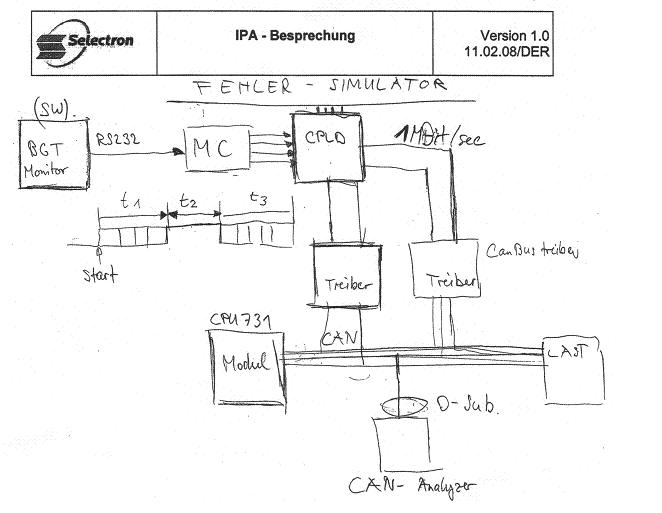 Selectron
IPA - Besprechung
Version 1.0
11.02.08/DER
FEHLER - SIMULATOR
(SW).
BGT
Monitor
RS232
MC
CPLD
1MBit/sec
t1
t2
t3
Start
Treiber
Treiber
CanBustreiber
CPU731
Modul
CAN
LAST
D-Sub.
CAN-Analyzer